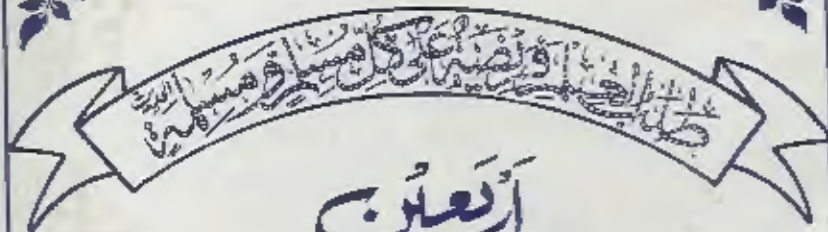 طلب العلم فريضة على كل مسلم ومسلمة الحديث
أربعين